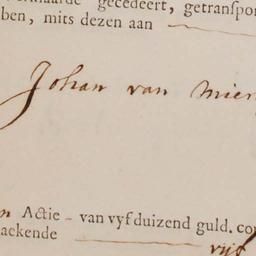 gecedeert, getranspor
ben, mits dezen aan
Johan van Mier
Actie van vyf duizend guld. cou
aekende vijf